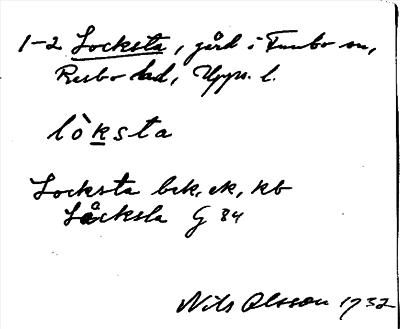 1-2 Locksta, gård i Tunbo sn,
Rusbo hd, Upps. l.
lòksta
Locksta bek, ek, kb
Låcksta G 84
Nils Olsson 1932